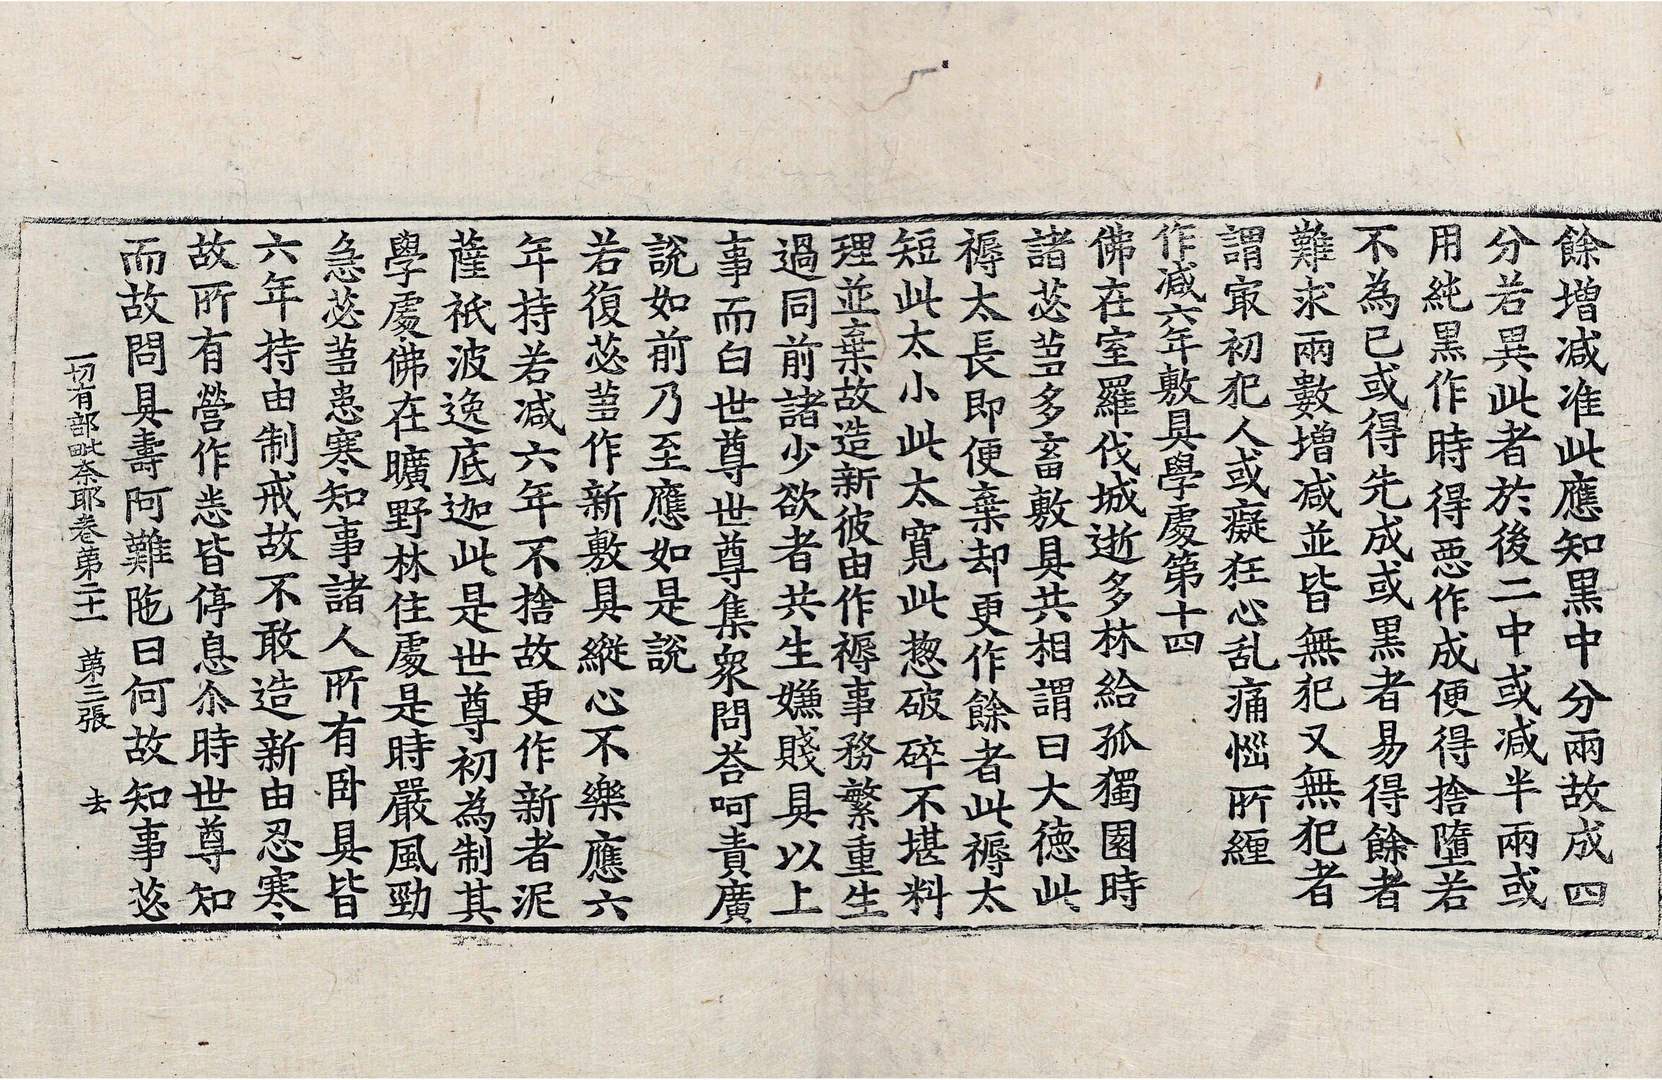 餘增减准此應知黒中分兩故成四
分若異此者於後二中或减半兩或
用純黒作時得惡作成便得捨墮若
不為已或得先成或黒者易得餘者
難求兩數增减並皆無犯又無犯者
謂㝡初犯人或癡狂心乱痛惱所纏
作减六年敷具學處第十四
佛在室羅伐城逝多林給孤獨園時
諸苾芻多畜敷具共相謂曰大德此
褥太長即便棄却更作餘者此褥太
短此太小此太寬此惣破碎不堪料
理並棄故造新彼由作褥事務繁重生
過同前諸少欲者共生嫌賤具以上
事而白世尊世尊集衆問荅呵責廣
說如前乃至應如是說
若復苾芻作新敷具縱心不樂應六
年持若减六年不捨故更作新者泥
薩祇波逸底迦此是世尊初為制其
學處佛在曠野林住處是時嚴風勁
急苾芻患寒知事諸人所有卧具皆
六年持由制戒故不敢造新由忍寒
故所有營作悉皆停息尒時世尊知
而故問具壽阿難陁曰何故知事苾
一切有部毗奈耶卷第二十一　第三張　去